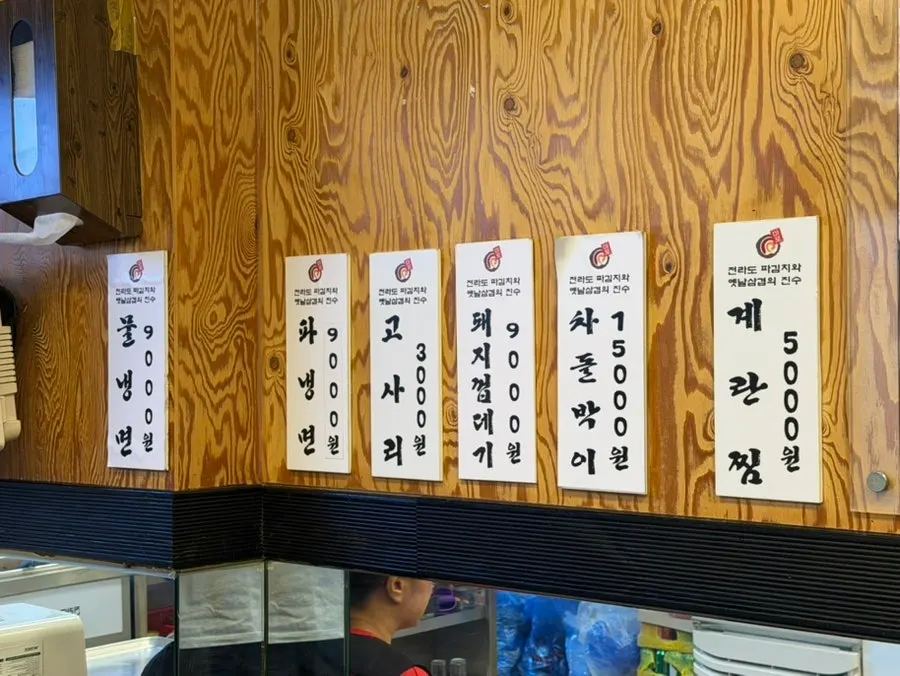 전라도 파김치와
옛날삼겹의 진수
물냉면
9000원
전라도 파김치와
옛날삼겹의 진수
파냉면
9000원
전라도 파김치와
옛날삼겹의 진수
고사리
3000원
전라도 파김치와
옛날삼겹의 진수
돼지껍데기
9000원
전라도 파김치와
옛날삼겹의 진수
차돌박이
15000원
전라도 파김치와
옛날삼겹의 진수
계란찜
5000원